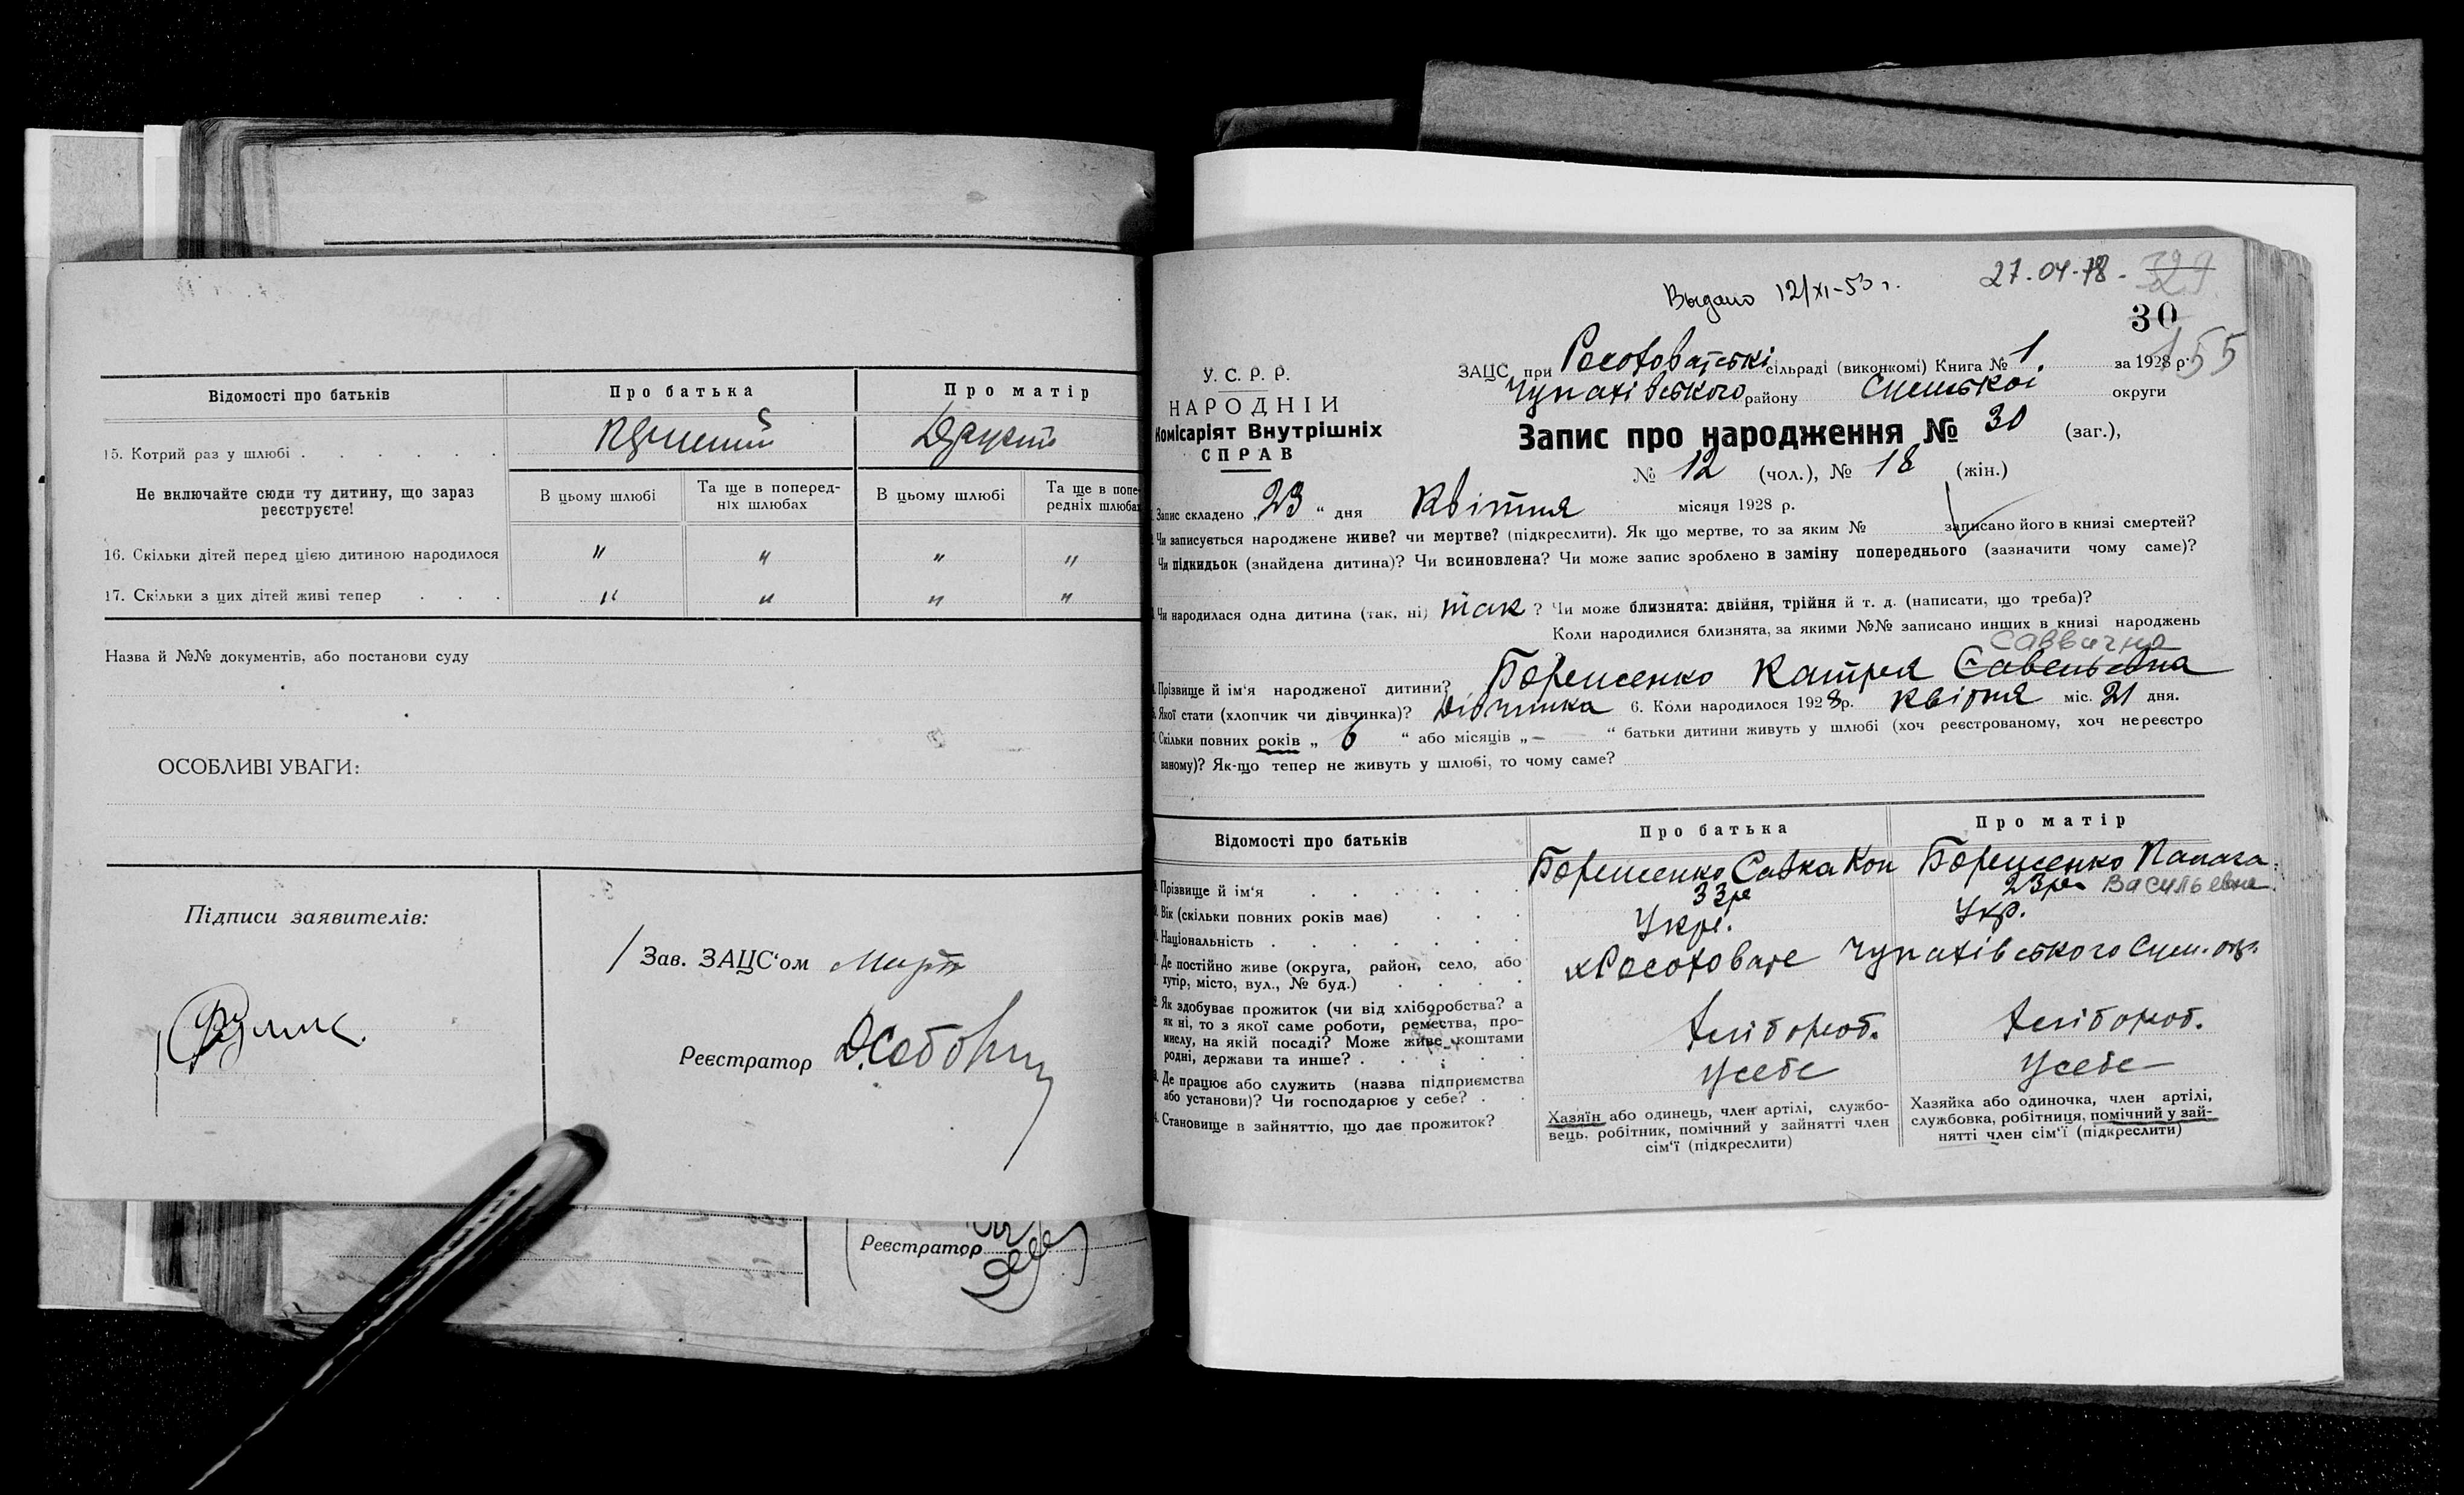 Відомості про батьків
Про батька
Про матір
15. Котрий раз у шлюбі . . . . . .
Не включайте сюди ту дитину, що зараз
реєструєте!
В цьому шлюбі
Та ще в поперед-
ніх шлюбах
В цьому шлюбі
Та ще в попе-
редніх шлюбах
16. Скільки дітей перед цією дитиною народилося
" " " "
17. Скільки з цих дітей живі тепер . . .
" " " "
Назва й №№ документів, або постанови суду
ОСОБЛИВІ УВАГИ:
Підписи заявителів:
Зав. ЗАЦС'ом
Реєстратор
Реєстратор
Выдано 12/XI-53 г.
27-04-78-
329
30
155
У. С. Р. Р.
НАРОДНІЙ
Комісаріят Внутрішніх
СПРАВ
ЗАЦС при сільраді (виконкомі) Книга № 1. за 1928 р.
Чупахівського району Сумської округи
Запис про народження № 30 (заг.),
№ 12 (чол.), № 18 (жін.)
Запис складено „23" дня Квітня місяця 1928 р.
Чи записується народжене живе? чи мертве? (підкреслити). Як що мертве, то за яким № записано його в книзі смертей?
Чи підкидьок (знайдена дитина)? Чи всиновлена? Чи може запис зроблено в заміну попереднього (зазначити чому саме)?
Чи народилася одна дитина (так, ні) так ? Чи може близнята: двійня, трійня й т. д. (написати, що треба)?
Коли народилися близнята, за якими №№ записано инших в книзі народжень
Саввична
Прізвище й ім'я народженої дитини? Борисенко Катря Савельевна
Якої стати (хлопчик чи дівчинка)? Дівчинка 6. Коли народилося 1928 р. Квітня міс. 21 дня.
Скільки повних років „ 6 " або місяців „ – " батьки дитини живуть у шлюбі (хоч реєстрованому, хоч нереєстро
ваному)? Як-що тепер не живуть у шлюбі, то чому саме?
Відомості про батьків
Про батька
Про матір
Прізвище й ім'я . . . . . .
Борисенко Савка Кон
Борисенко
Васильевна
Вік (скільки повних років має) . . .
33
23
Національність . . . . . .
Укр.
Укр.
Де постійно живе (округа, район, село, або
хутір, місто, вул., № буд.) . . . .
Чупахівського Сум. окр.
Як здобуває прожиток (чи від хліборобства? а
як ні, то з якої саме роботи, ремества, про-
мислу, на якій посаді? Може живе коштами
родні, держави та инше? . . . . .
Хлібороб.
Хлібороб.
Де працює або служить (назва підприємства
або установи)? Чи господарює у себе? . .
У себе
У себе
Становище в зайняттю, що дає прожиток?
Хазяїн або одинець, член артілі, службо-
вець, робітник, помічний у зайнятті член
сім'ї (підкреслити)
Хазяйка або одиночка, член артілі,
службовка, робітниця, помічний у зай-
нятті член сім'ї (підкреслити)